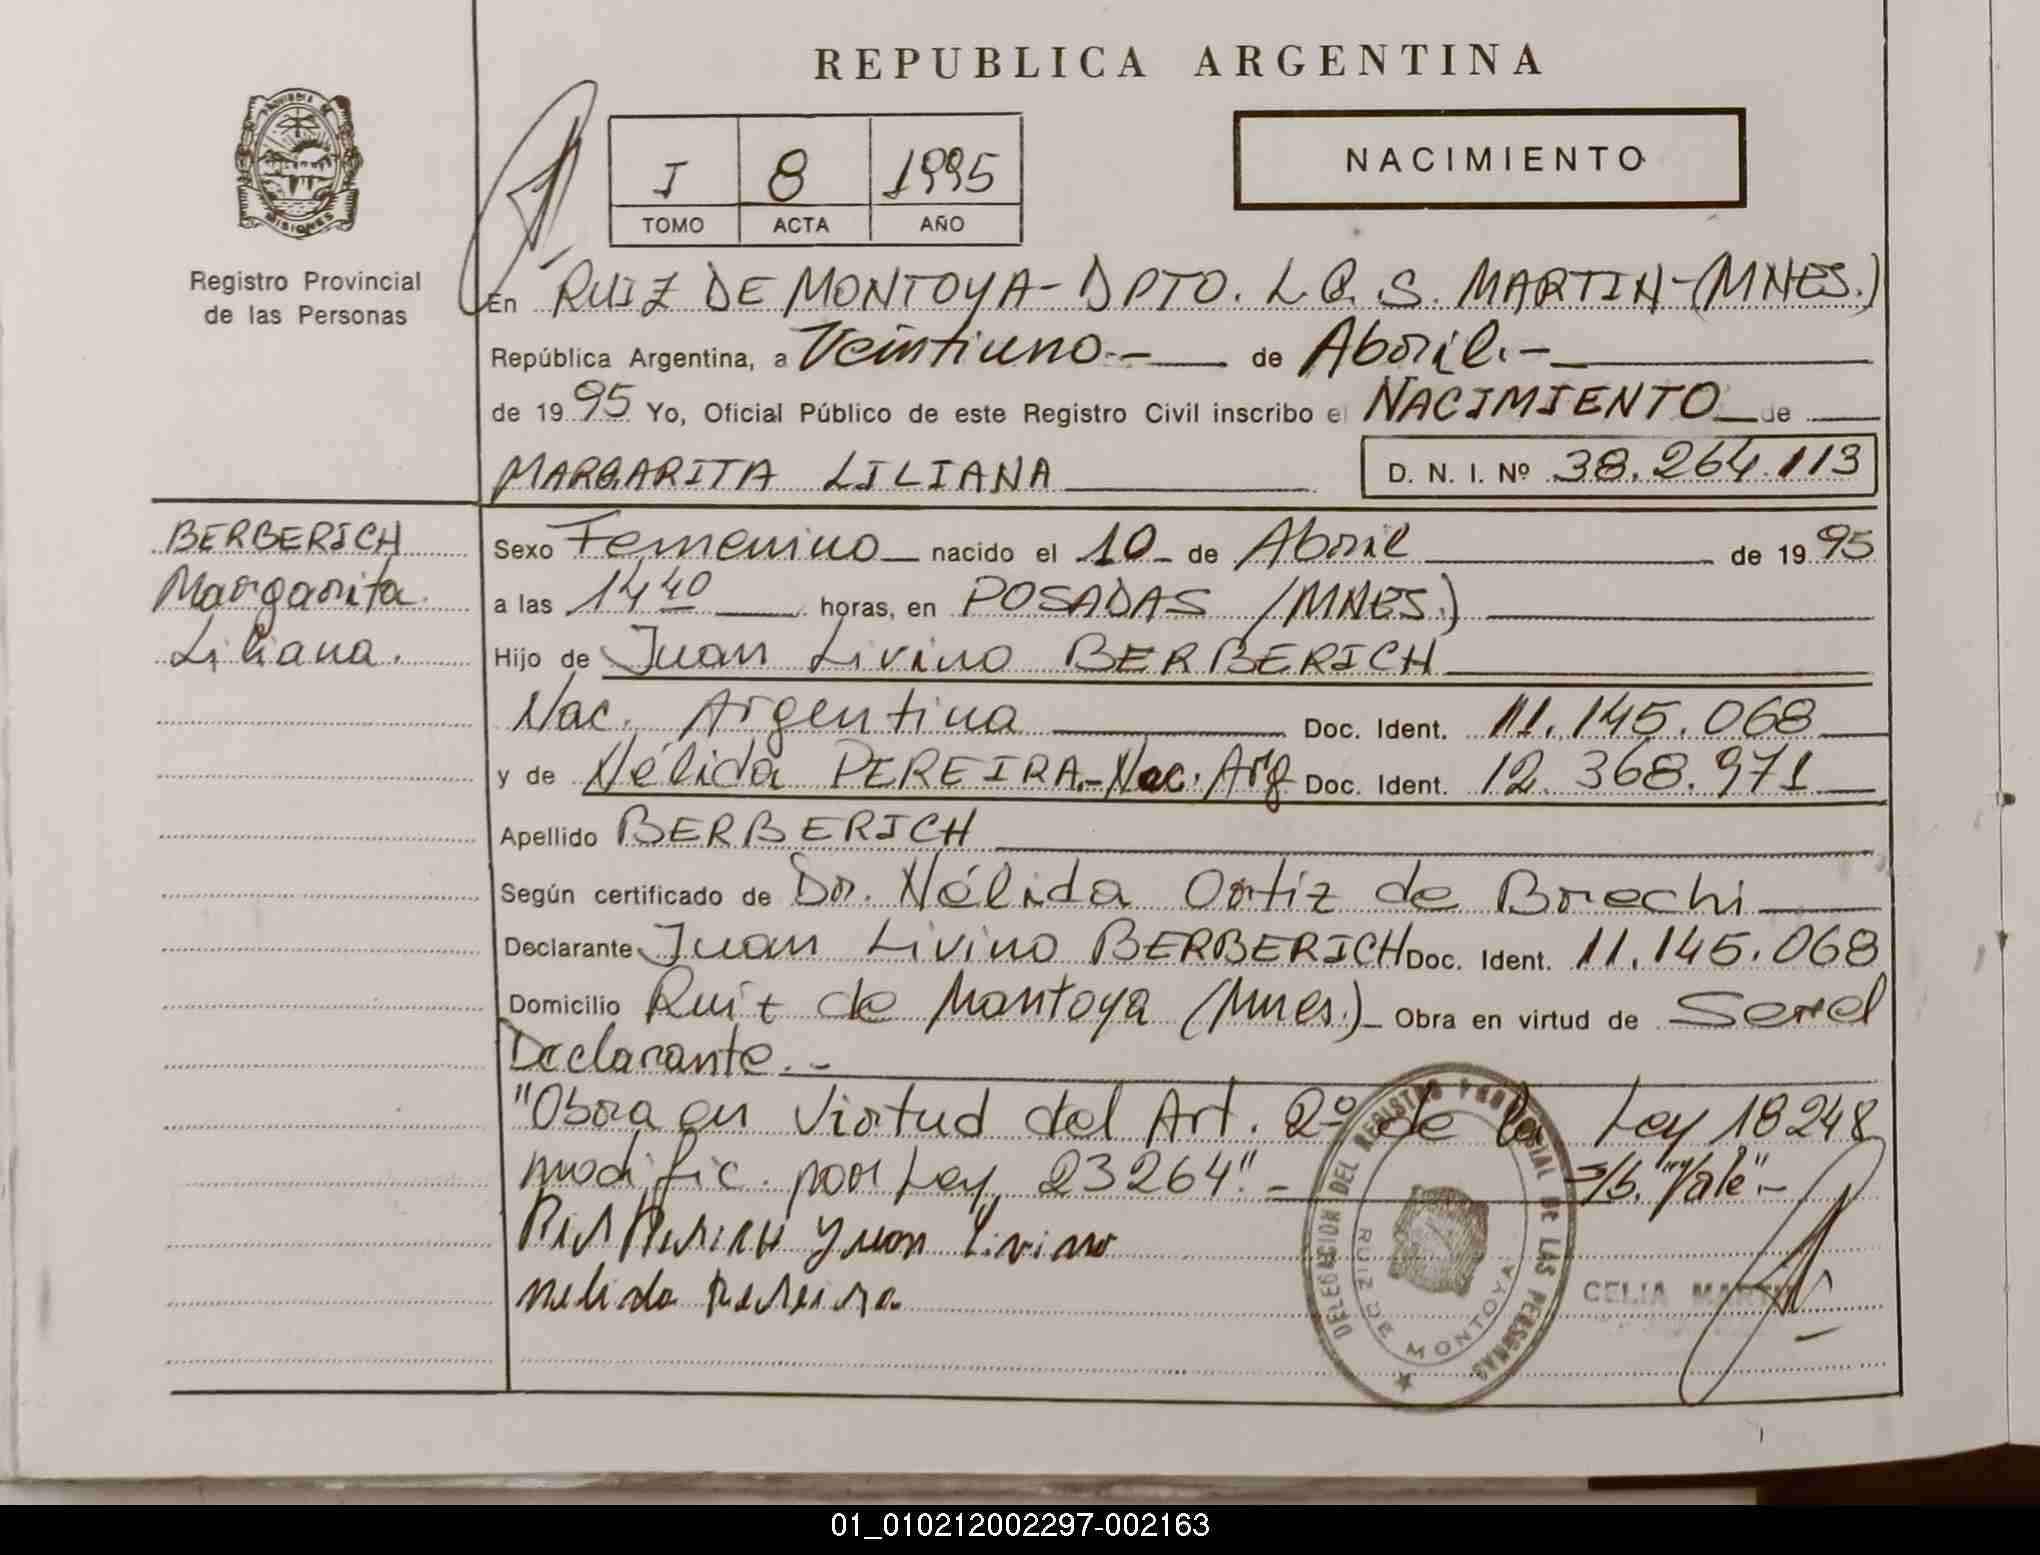 REPUBLICA ARGENTINA
PROVINCIA DE
MISIONES
Registro Provincial
de las Personas
I 8 1995
TOMO ACTA AÑO
NACIMIENTO
En RUIZ DE MONTOYA - DPTO. L.G.S. MARTIN - (MNES.)
República Argentina, a Veintiuno.- de Abril.-
de 1995 Yo, Oficial Público de este Registro Civil inscribo el NACIMIENTO de
MARGARITA LILIANA D. N. I. Nº 38.264.113
BERBERICH
Margarita
Liliana.
Sexo Femenino nacido el 10 de Abril de 1995
a las 14 40 horas, en POSADAS (MNES.)
Hijo de Juan Livino BERBERICH
Nac. Argentina Doc. Ident. 11.145.068
y de Nélida PEREIRA.- Nac. Arg Doc. Ident. 12.368.971
Apellido BERBERICH
Según certificado de Dr. Nélida Ortiz de Brechi
Declarante Juan Livino BERBERICH Doc. Ident. 11.145.068
Domicilio Ruiz de Montoya (Mnes.) Obra en virtud de Ser el
Declarante.-
"Obra en Virtud del Art. 2º de la Ley 18248
modific. por Ley 23264".- s/b. "Vale".-
Juan Livino
Nelida Pereira
DELEGACION DEL REGISTRO PROVINCIAL DE LAS PERSONAS
RUIZ DE MONTOYA
CELIA
01_010212002297-002163